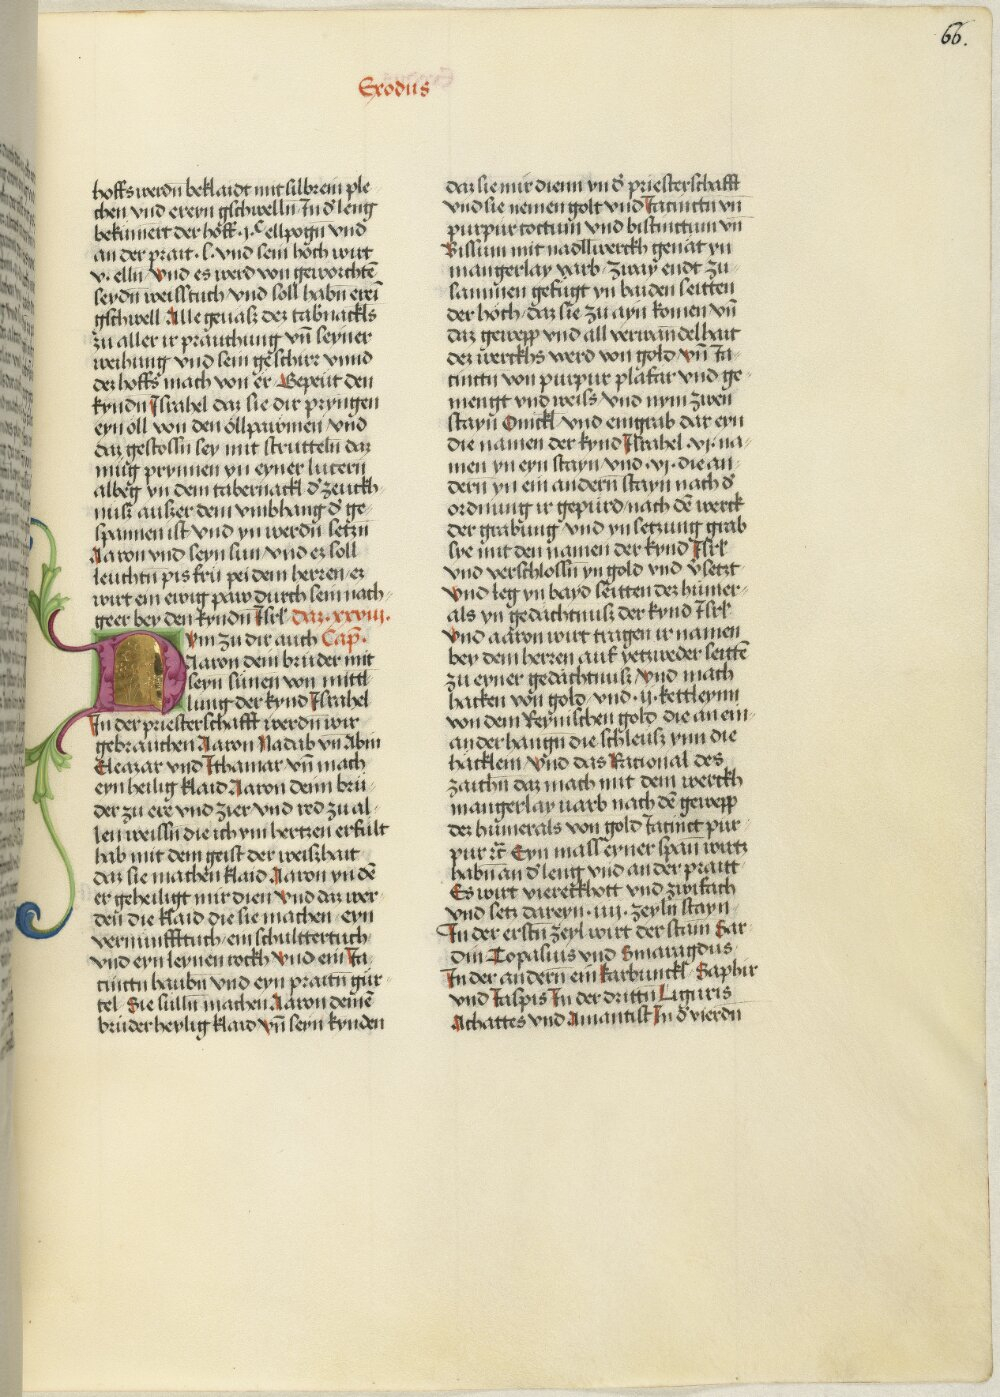 66.
Exodus
hoffs werdn beklaidt mit silbrein ple
chen vnd erern gschwelln In d̕ leng
bekumert der hoff .j.c ellpogn vnd
an der prait .l. vnd sein hoch wirt
v. elln vnd es werd von geworchtē
seydn weisstuch vnd soll habn erei
gschwell Alle geuasz dez tab̕nackls
zu aller ir prauchung vn̄ seyner
weihung vnd sein geschirr vnnd
dez hoffs mach von er Gepeut den
kyndn Israhel daz sie dir pryngen
eyn öll von den öllpawmen vnd
daz gestossn sey mit strutteln daz
mug prynnen yn eyner lucern
albeg yn dem tabernackl d̕ zeuckh
nusz auszer dem vmbhang d̕ ge
spannen ist vnd yn werdn setzn
Aaron vnd seyn sun vnd ez soll
leuchtn pis fru pei dem herren ez
wirt ein ewig paw durch sein nach
geer bey den kyndn Isrl daz .xxviij.
Nym zu dir auch Cap̄.
Aaron dein bruder mit
seyn sünen von mittl
lung der kynd Israhel
In der priesterschafft werdn wir
gebrauchen Aaron Nadab vn̄ Abiu
Eleazar vnd Ithamar vn̄ mach
eyn heilig klaid Aaron deim bru
der zu ere vnd zier vnd red zu al
len weissn die ich ym hertzen erfult
hab mit dem geist der weiszhait
daz sie machen klaid Aaron yn dē
er geheiligt mir dien vnd daz wer
den die klaid die sie machen eyn
vernunfftuch ein schulttertuch
vnd eyn leynen rockh vnd ein Ja
cinctn haubn vnd eyn praitn gür
tel Sie sulln machen Aaron deinē
bruder heylig klaid vn̄ seyn kynden
daz sie mir dienn yn d̕ priesterschafft
vnd sie nemen golt vnd Jacinctn vn̄
purpur coctum vnd bistinctum vn̄
Bissum mit nadllwerckh genat yn
mangerlay varb zway endt zu
sammen gefugt yn baiden seitten
der hoch daz sie zu ayn komen vn̄
daz gewepp vnd all verwandelhait
dez werckhs werd von gold vn̄ Ja
cinctn von purpur plafar vnd ge
mengt vnd weiss vnd nym zwen
stayn Onickl vnd eingrab dar eyn
die namen der kynd Israhel .vj. na
men yn eyn stayn vnd .vj. die an
dern yn ein andern stayn nach d̕
ordnung ir gepurd nach dē werck
der grabung vnd yn setzung grab
sye mit den namen der kynd Isrl
vnd verschlossn yn gold vnd v̕setzt
vnd leg yn bayd seutten dez humer
als yn gedachtnusz der kynd Isrl
vnd aaron wirt tragen ir namen
bey dem herren auf yetweder seittē
zu eyner gedachtnusz vnd mach
hacken von gold vnd .ij. kettleynn
von dem Reynischen gold die an ein
ander hangn die schleusz ynn die
hacklein vnd das Rational des
zaichn daz mach mit dem werckh
mangerlay uarb nach dē gewepp
dez humerals von gold Jacinct pur
pur rc̄ Eyn mass eyner spann wirtz
habn an d̕ leng vnd an der praitt
Es wirt viereckhott vnd zwifach
vnd setz dareyn .iiij. zeyln stayn
In der erstn zeyl wirt der stain Sar
din Topasius vnd Smaragdus
In der andern ein karbunckl Saphir
vnd Jaspis In der drittn Liguris
Achattes vnd Amantist In d̕ vierdn